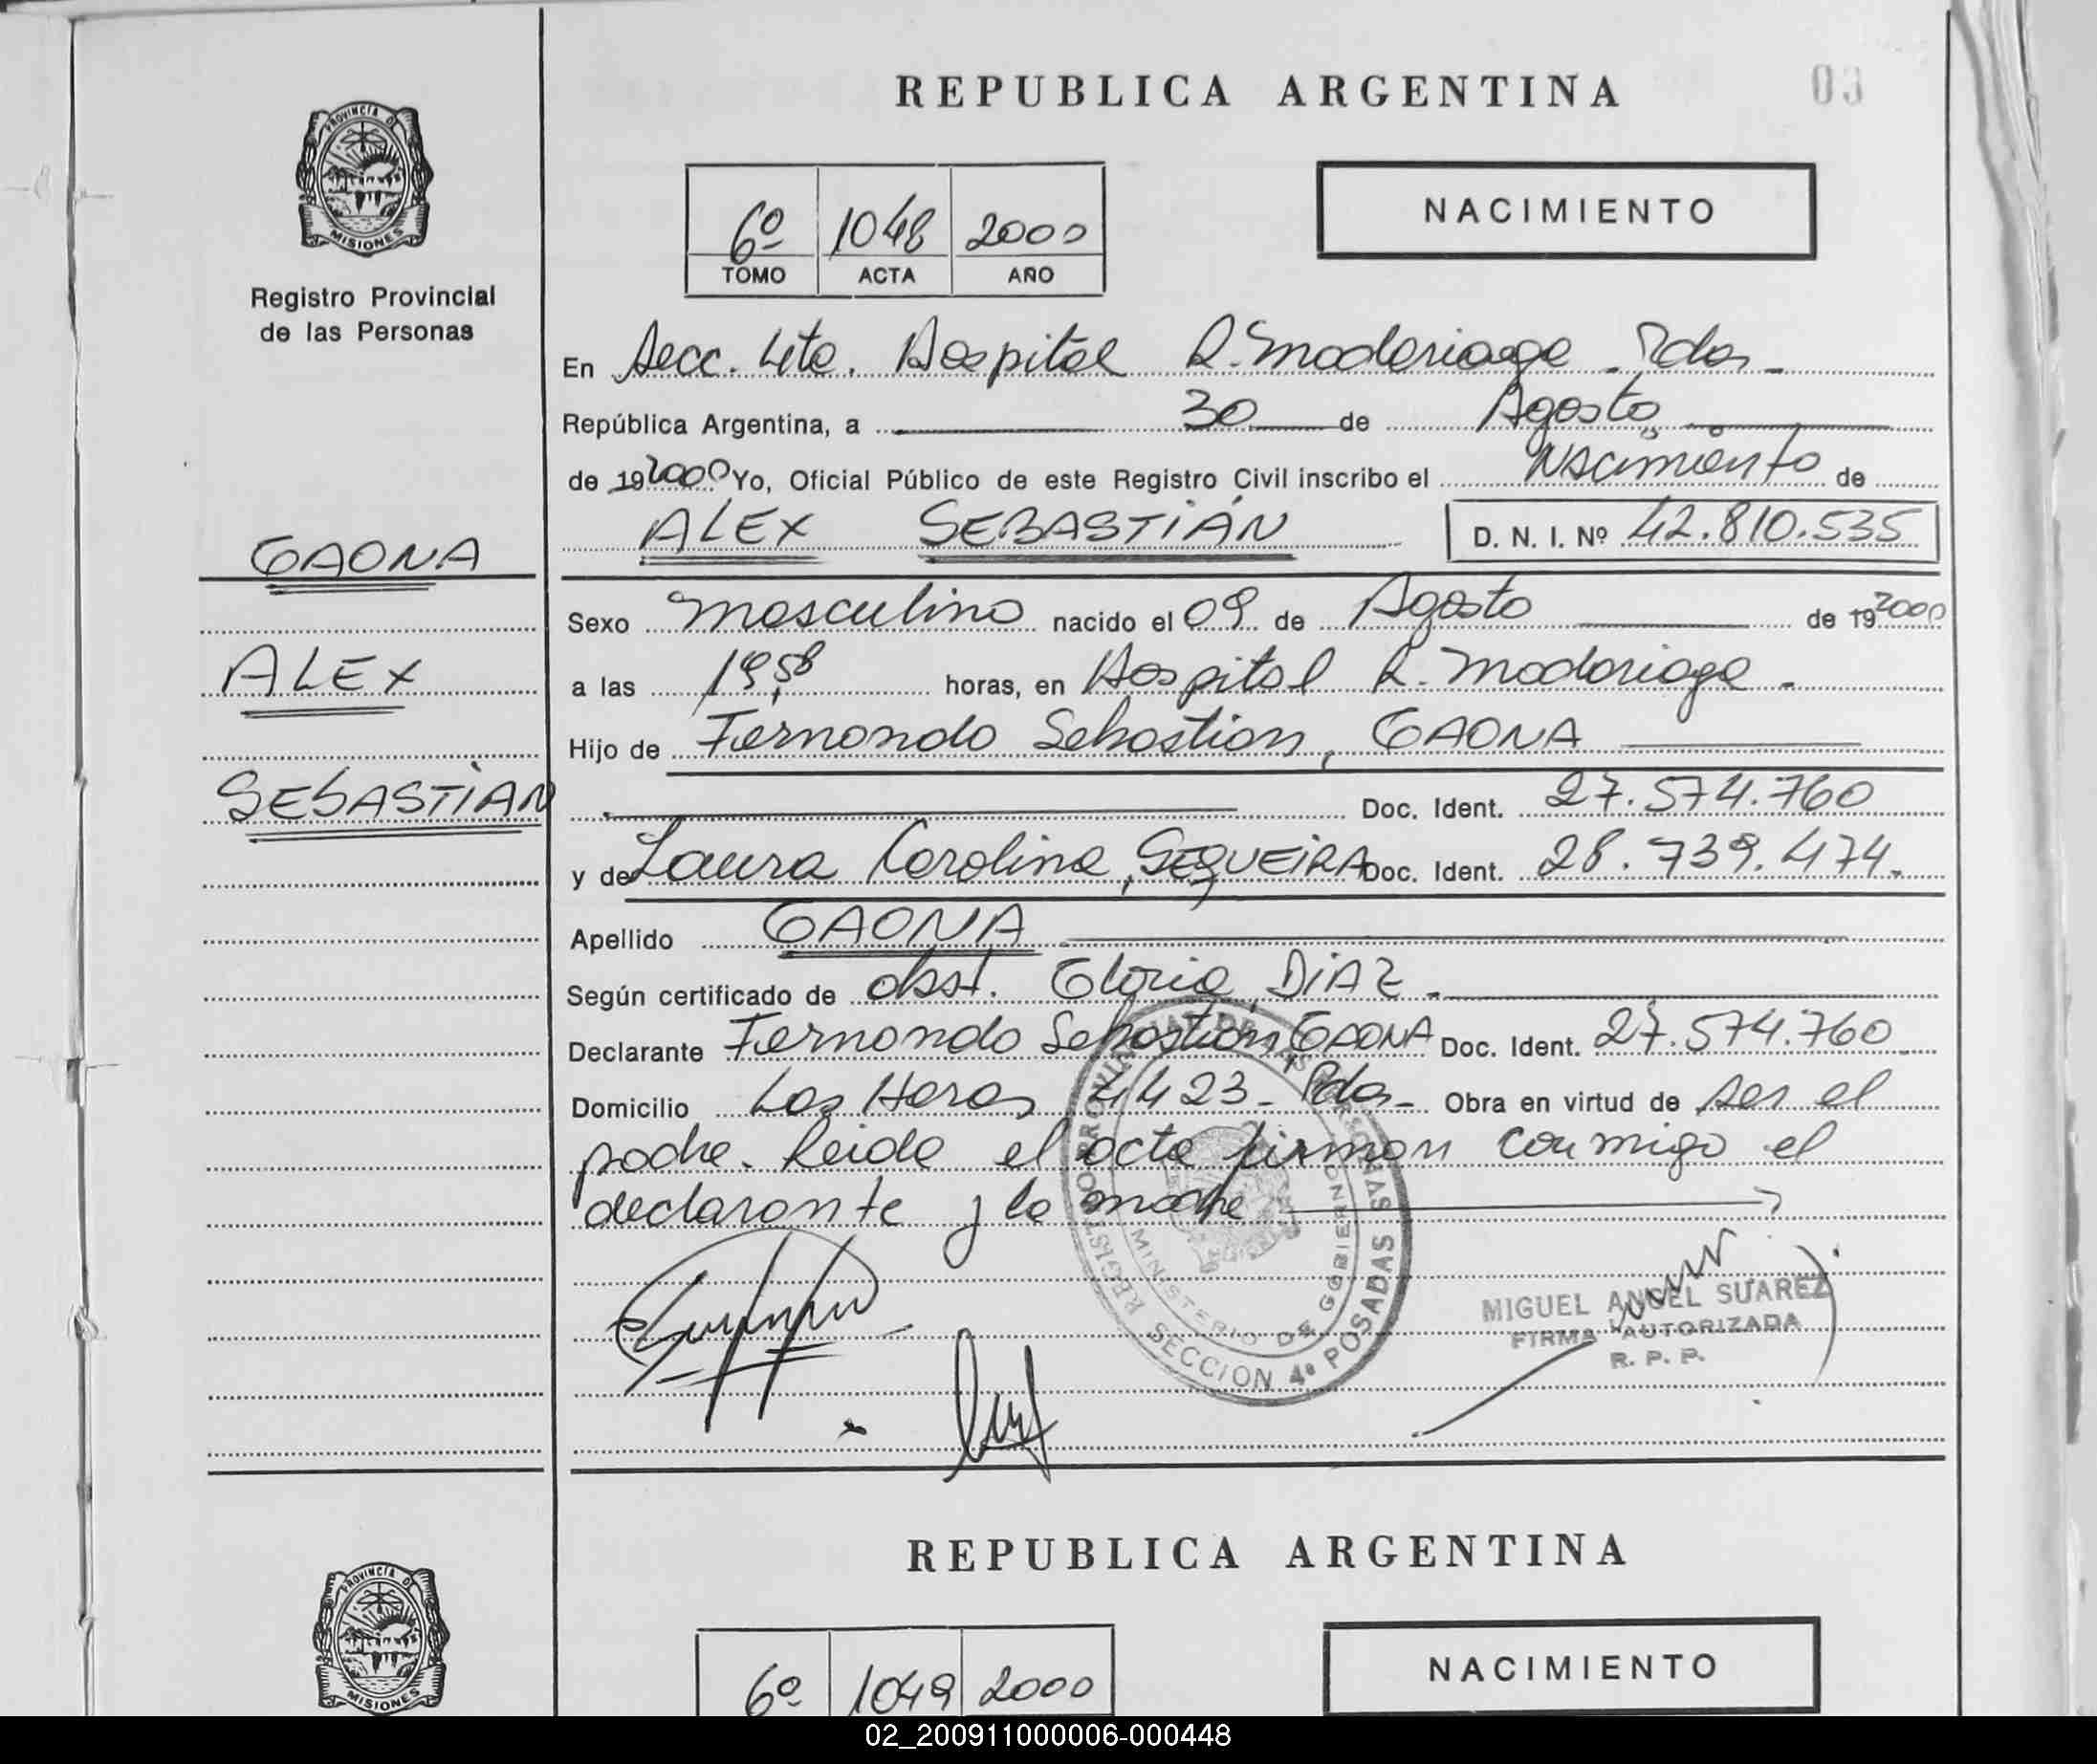 REPUBLICA ARGENTINA
03
PROVINCIA DE
MISIONES
Registro Provincial
de las Personas
6º 1048 2000
TOMO ACTA AÑO
NACIMIENTO
En Secc. 4ta. Hospital R. Madariaga - Pdas -
República Argentina, a 30 de Agosto
de 19 2000 Yo, Oficial Público de este Registro Civil inscribo el Nacimiento de
ALEX SEBASTIÁN D. N. I. Nº 42.810.535
GAONA
ALEX
SEBASTIÁN
Sexo masculino nacido el 09 de Agosto de 19 2000
a las 19,58 horas, en Hospital R. Madariaga -
Hijo de Fernando Sebastian, GAONA
Doc. Ident. 27.574.760
y de Laura Carolina, SEQUEIRA Doc. Ident. 28.739.474.
Apellido GAONA
Según certificado de obst. Gloria DIAZ -
Declarante Fernando Sebastián, GAONA Doc. Ident. 27.574.760
Domicilio Las Heras 4423 - Pdas - Obra en virtud de ser el
padre. Leida el acta firman conmigo el
declarante y la madre
REGISTRO PROVINCIAL DE LAS PERSONAS
MINISTERIO DE GOBIERNO
SECCION 4ª POSADAS
MIGUEL ANGEL SUAREZ
FIRMA AUTORIZADA
R. P. P.
REPUBLICA ARGENTINA
PROVINCIA DE
MISIONES
6º 1049 2000
NACIMIENTO
02_200911000006-000448